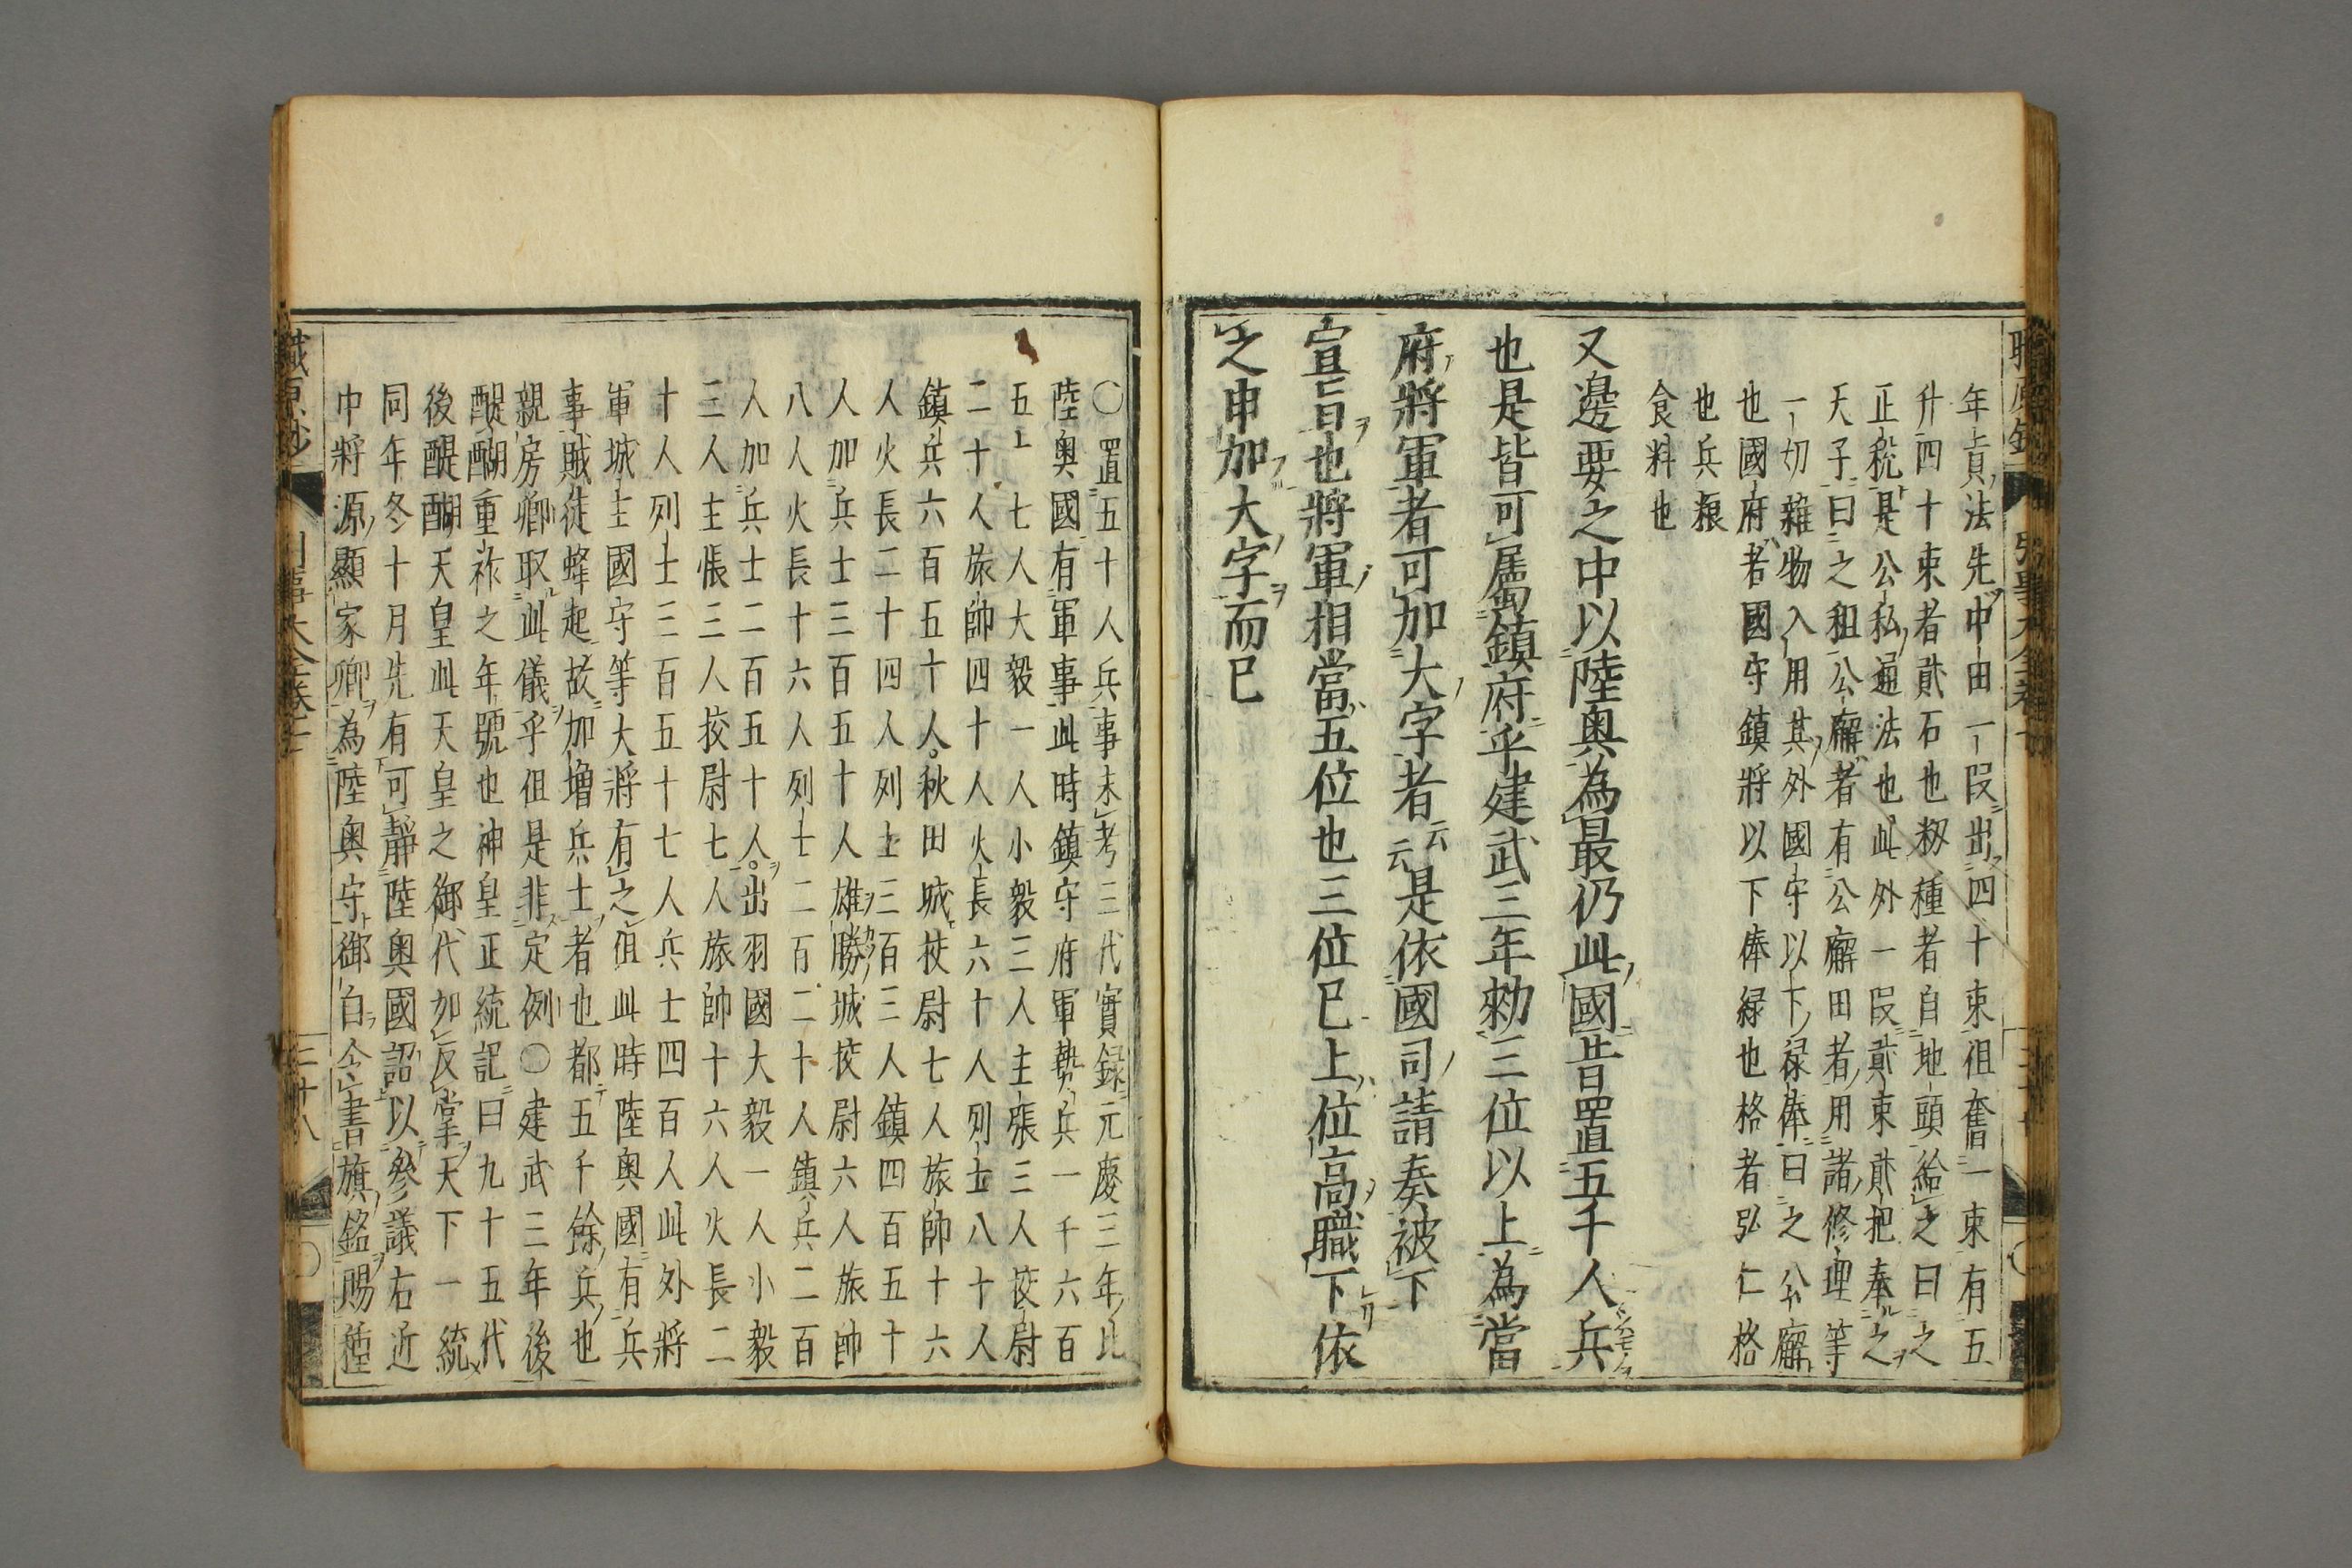 年貢法先中田一段出四十束祖奮一束有五
升四十束者貮石也籾種者自地頭給之曰之
正税是公私通法也此外一段貮束貮把奉之
天子曰之租公廨者有公廨田者用諸修理等
一切雜物入用其外國守以下禄俸曰之公廨
也國府者國守鎮將以下俸緑也格者弘仁格
也兵粮
食料也
又邊要之中以陸奥為最仍此國昔置五千人兵
也是皆可属鎮府乎建武三年勅三位以上為當
府將軍者可加大字者云云是依國司請奏被下
宣旨也將軍相當五位也三位已上位高職下依
之申加大字而已
〇置五十人兵事未考三代實録元慶三年比
陸奥國有軍事此時鎮守府軍勢兵一千六百
五十七人大毅一人小毅三人主張三人校尉
二十人旅帥四十人火長六十人列士八十人
鎮兵六百五十人秋田城校尉七人旅帥十六
人火長二十四人列士三百三人鎮四百五十
人加兵士三百五十人雄勝城校尉六人旅帥
八人火長十六人列士二百二十人鎮兵二百
人加兵士二百五十人出羽國大毅一人小毅
三人主悵三人校尉七人旅帥十六人火長二
十人列士三百五十七人兵士四百人此外將
軍城主國守等大將有之但此時陸奥國有兵
事賊徒蜂起故加増兵士者也都五千餘兵也
親房卿取此儀乎但是非定例〇建武三年後
醍醐重祚之年號也神皇正統記曰九十五代
後醍醐天皇此天皇之御代如反掌天下一統
同年冬十月先有可靜陸奥國詔以參議右近
中將源顯家卿為陸奥守御自令書旗銘賜種
職原抄
三十八